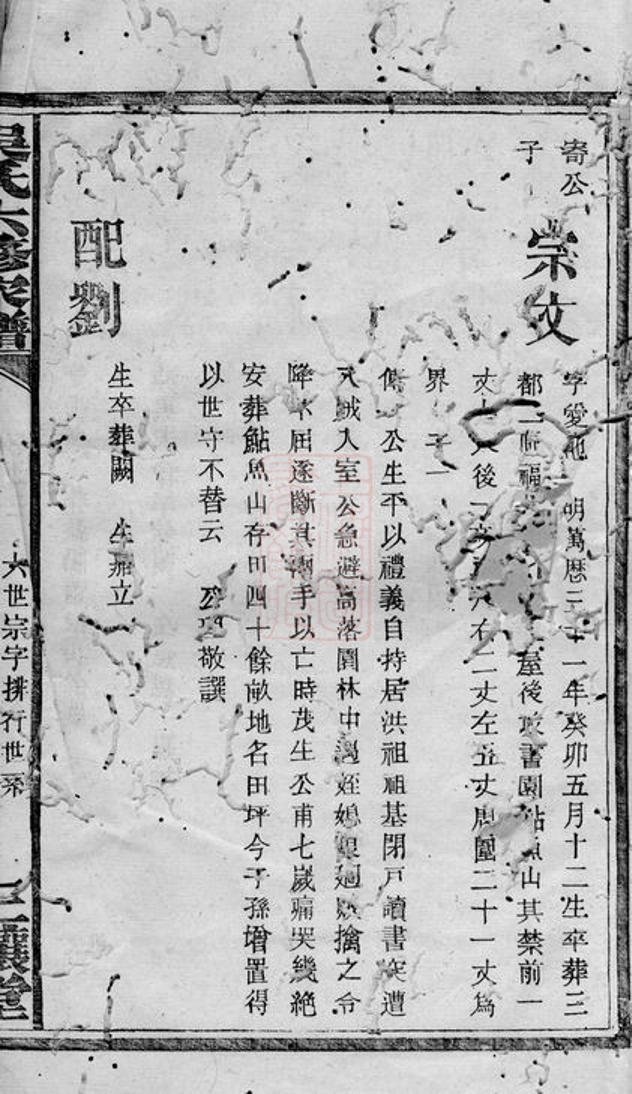 寄公
子
崇文
字愛 明萬曆三十一年癸卯五月十二生卒葬三
都 福 屋後 書園鮎魚山其禁前一
丈 後 右二丈左五丈周圍二十一丈為
界 子一
傳 公生平以禮義自持居洪祖祖基閉戶讀書突遭
賊入室公急避高落園林中遇姪媳 擒之令
降不屈遂斷其兩手以亡時茂生公甫七歲痛哭幾絶
安葬鮎魚山存田四十餘畝地名田坪今子孫增置得
以世守不替云 敬譔
配劉
生卒葬闕 生 立
吳氏六修家譜
六世崇字排行世系
三讓堂